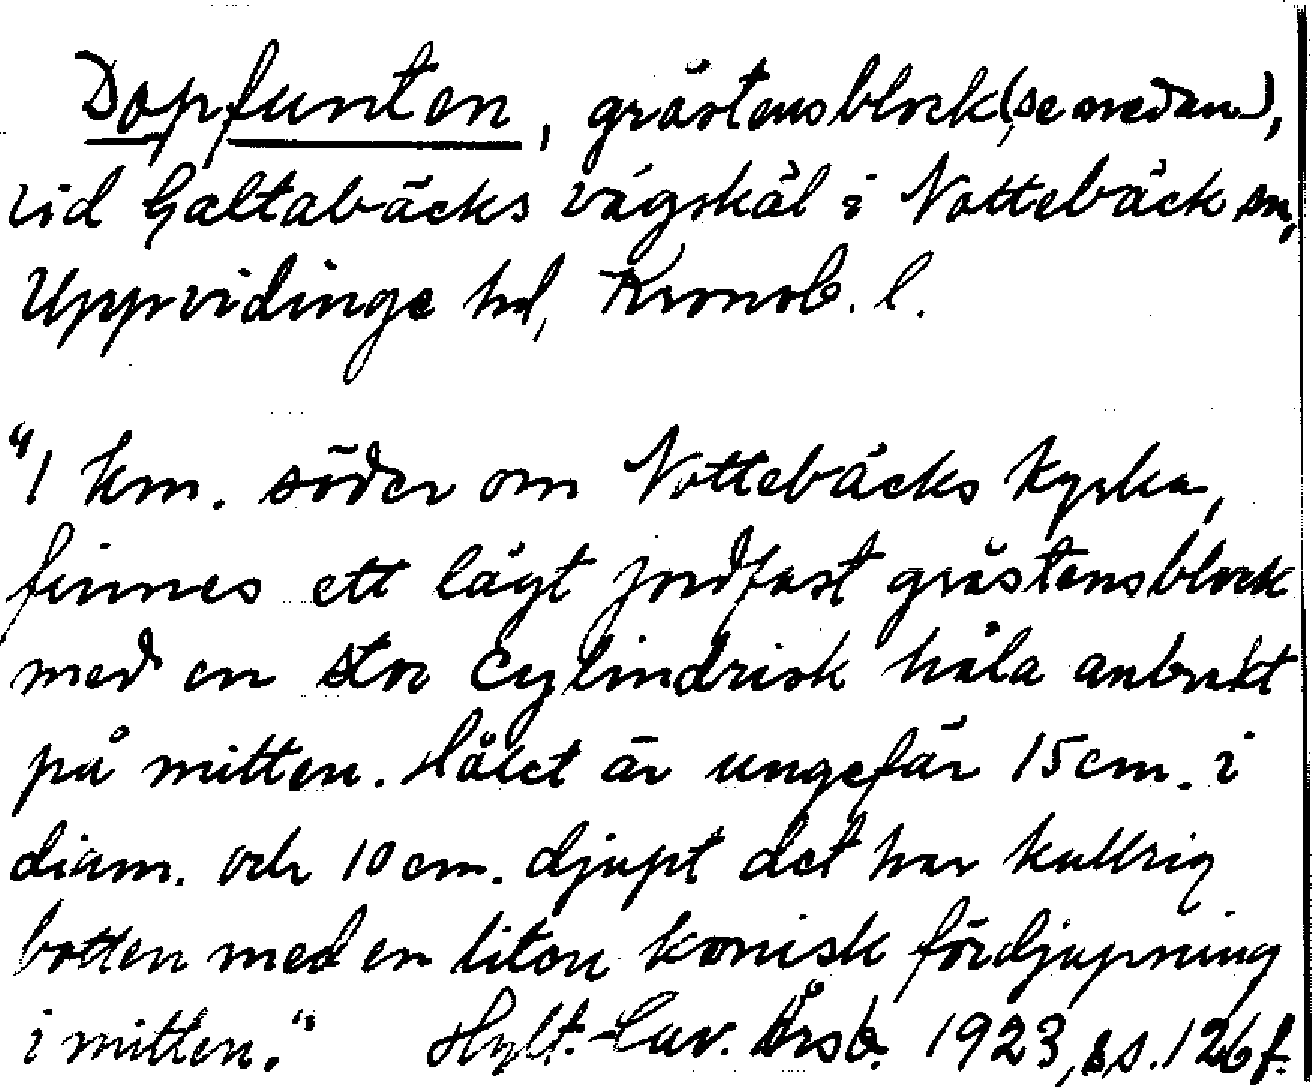 Dopfunten, gråstensblock (se nedan),
vid Galtabäcks vägskäl i Nottebäck sn,
Uppvidinge hd, Kronob. l.
"1 km. söder om Nottebäcks kyrka,
finnes ett lågt jordfast gråstensblock
med en stor cylindrisk håla anbrakt
på mitten. Hålet är ungefär 15 cm. i
diam. och 10 cm. djupt det har kullrig
botten med en liten konisk fördjupning
i mitten." Hylt.-Cav. Årsb. 1923, s. 126 f.